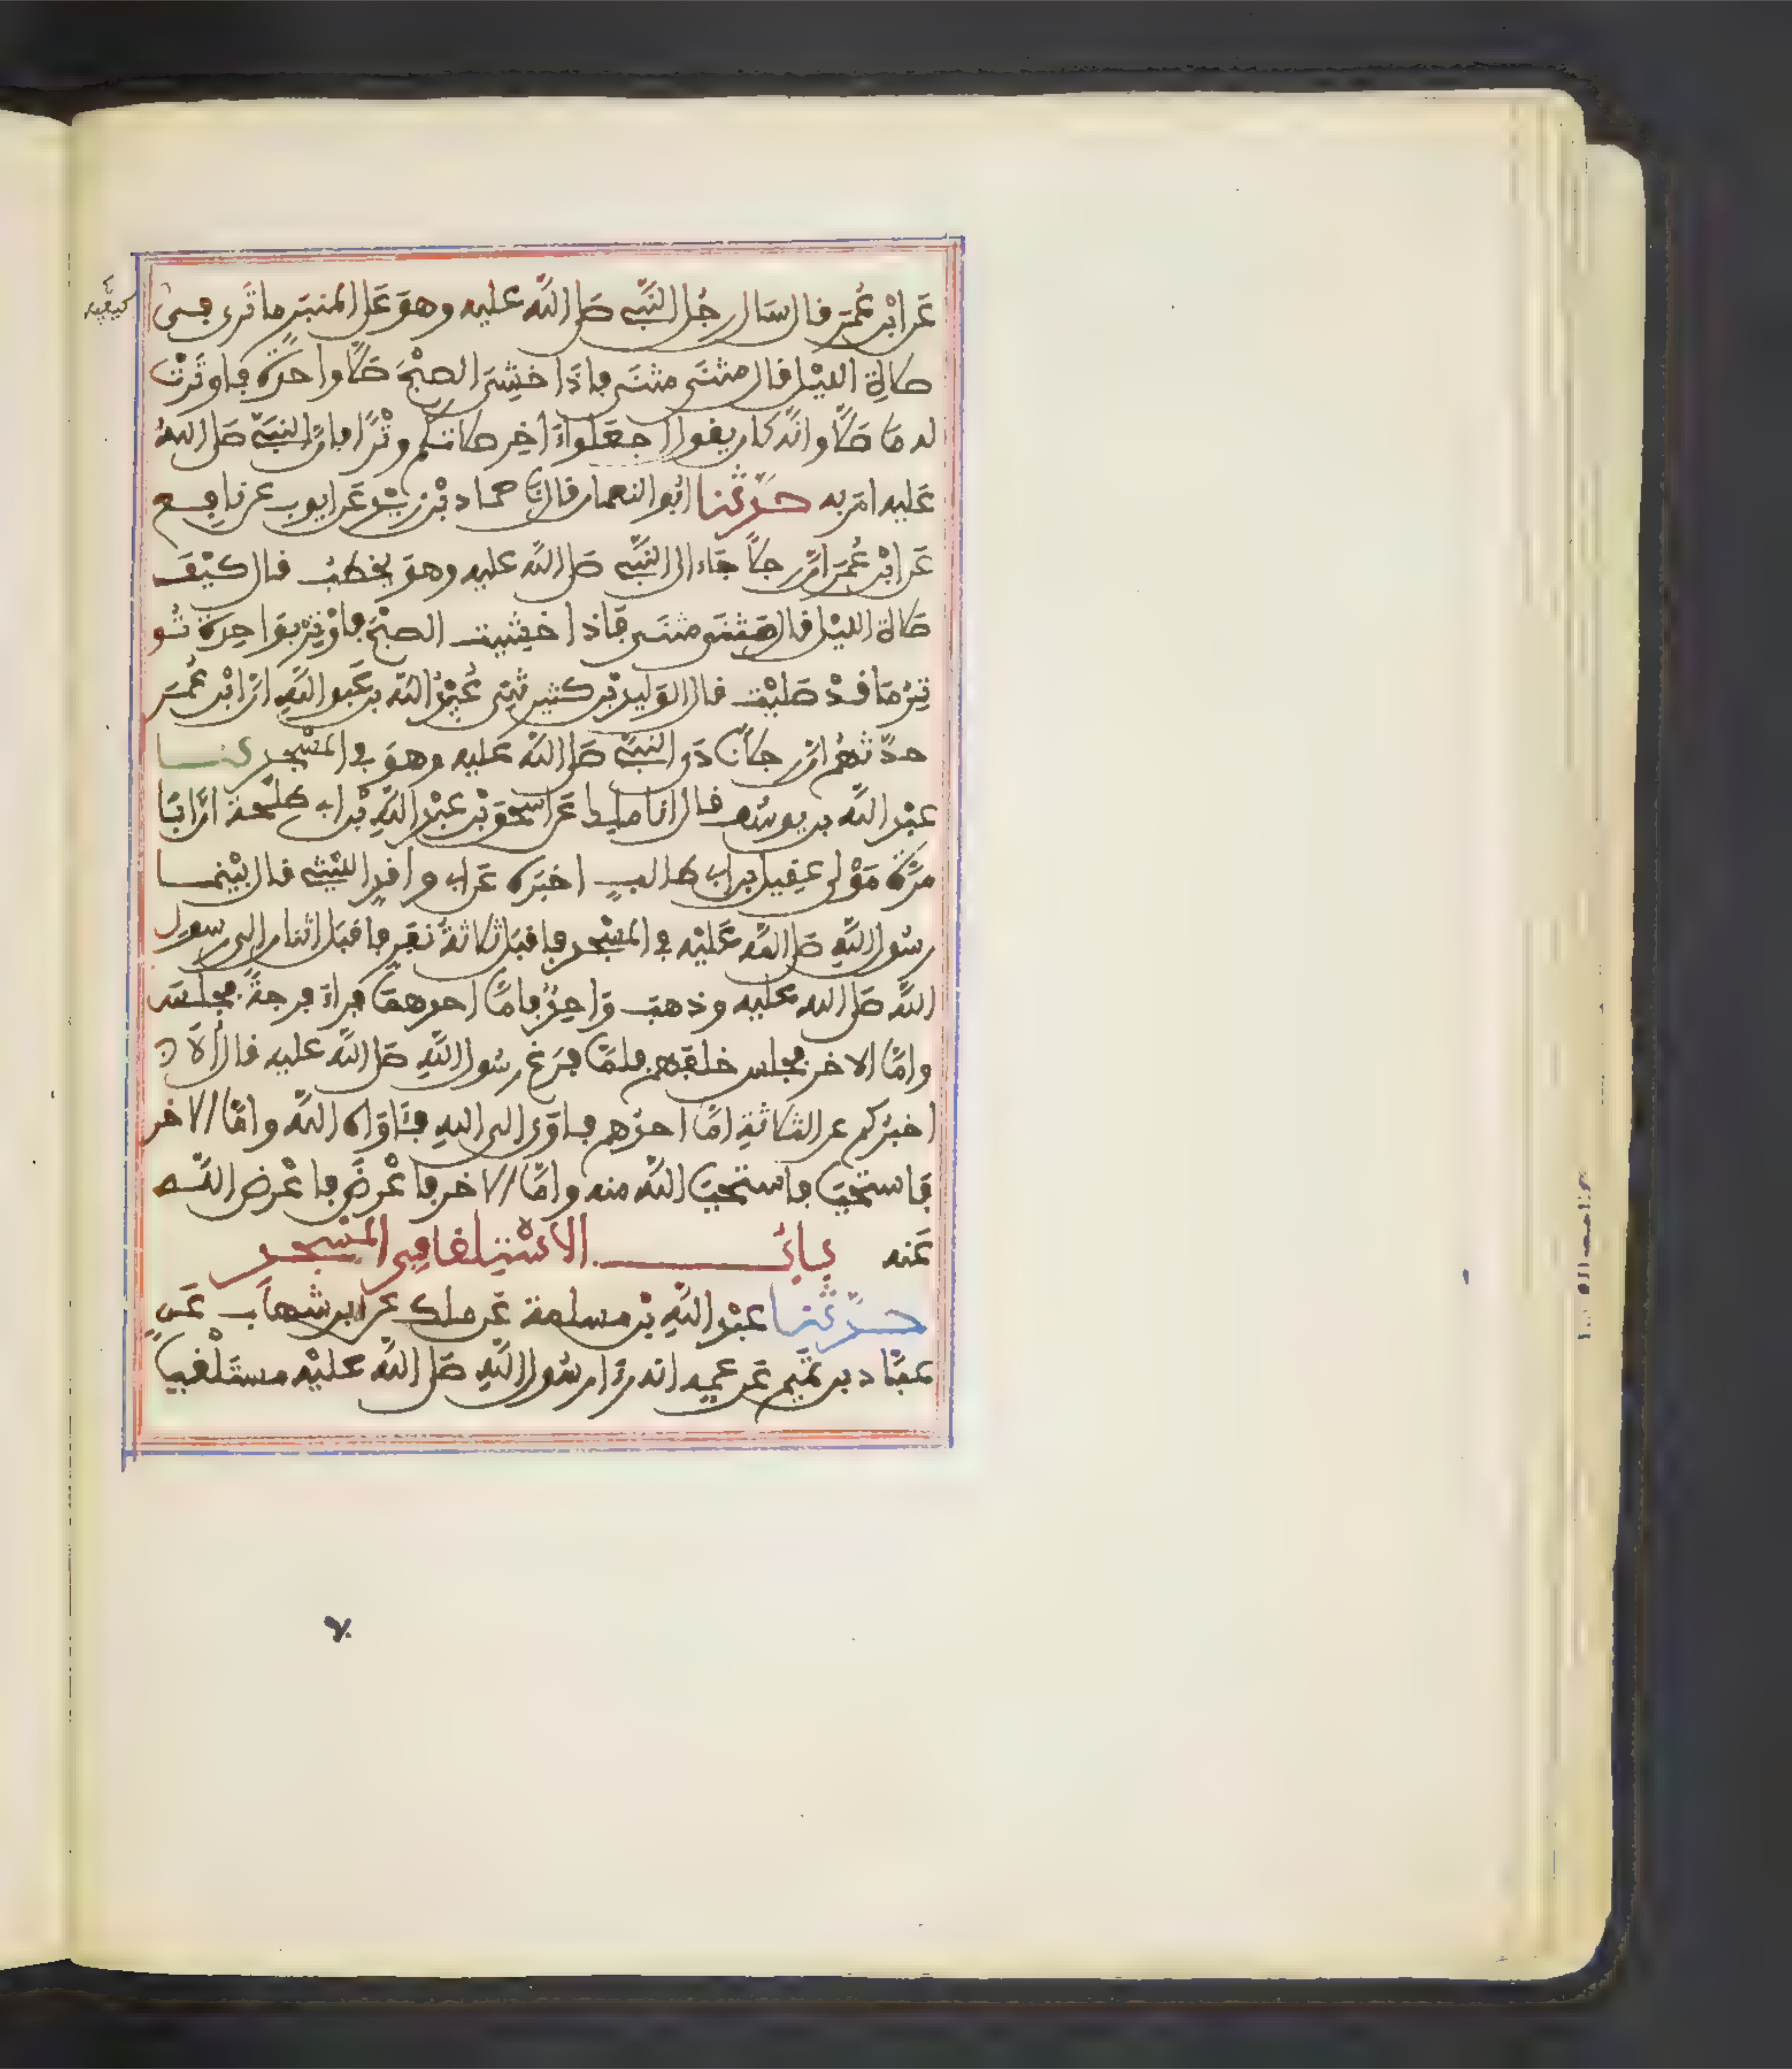 عَن ابْنِ عُمَرَ قال سَال رجُل النَّبِيَّ صَلى اللَّه عليه وهوَ عَلى المنبَر ما تَرى في
صلاةِ الليْل قال مثنَى مثنَى فإذَا خشِىَ الصبْحَ صَلَّى واحدَةً فاوتَرتْ
له مَا صَلَّى وانَّه كان يقول اجعَلوا ءَاخِر صلاتكم وتْرًا فإنَّ النبيَّ صَلى اللهُ
عَليه امَر به حدّثنا ابُو النعمان قال نَا حماد بْن زيْد عَن ايوب عن نافع
عَن ابْن عُمَر انَّ رجلًا جَاء الى النَّبِيِّ صَلى اللَّه عليه وهوَ يخطبُ فقال كيْفَ
صَلاة الليْل قال مثنَى مثنَى فَاذا خشيتَ الصبْحَ فاوْتِرْ بوَاحِدَة تُو
تِرُ مَا قدْ صَليْتَ قال الوَليد بْن كثير ثنِي عُبَيْدُ اللَّه بن عَبد اللَّهِ انَّ ابْن عُمَرَ
حدَّثهُمُ انَّ رجلًا نَادَى النبيَّ صَلى اللَّه عليه وهوَ في المسْجد نـا
عبْد اللَّه بن يوسُف قال انا ملك عَن اسحَق بْن عبْد اللَّهِ بْن ابي طلْحة انَّ ابَا
مرَّةَ مَوْلى عَقِيل بن ابي طالبٍ اخبَره عَن ابي واقدٍ الليْثي قال بيْنمـا
رسُول اللَّهِ صَلى اللَّه عَليْه في المسْجد فاقبَل ثلاثةُ نفَرٍ فاقبَل اثنان الى رسول
اللَّه صَلى الله عَليه وذهبَ وَاحِدٌ فامَّا احدهمَا فرأى فرجةً فجلسَ
وامَّا الاخر فجلس خلفهم فلمَّا فرَغ رسُول اللَّهِ صَلى اللَّه عليه قال ألَا
اخبرُكم عن الثلاثةِ امَّا احدُهم فاوَى الى اللهِ فئَاوَاه اللَّه وامَّا الاخر
فَاستحْيَى فاستحْيَى اللَّه منه وامَّا الاخر فاعْرضَ فاعْرض اللَّه
عَنه بابُ الاسْتِلقا في المسْجد
حدّثنا عبْد اللَّهِ بْن مسلمة عَن ملك عن ابن شهَاب عَن
عبَّاد بن تميم عَن عمِه انه رَأى رسُول اللَّهِ صَلى اللَّه عليْه مستَلْقيا